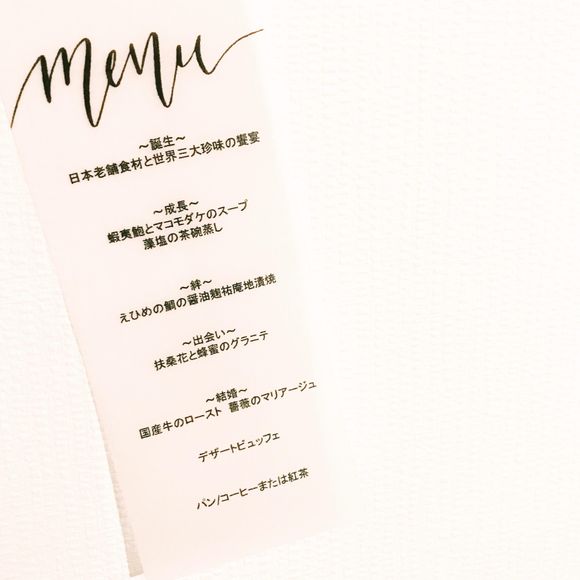 menu
～誕生～
日本老舗食材と世界三大珍味の饗宴
～成長～
蝦夷鮑とマコモダケのスープ
藻塩の茶碗蒸し
～絆～
えひめの鯛の醤油麹祐庵地漬焼
～出会い～
扶桑花と蜂蜜のグラニテ
～結婚～
国産牛のロースト 薔薇のマリアージュ
デザートビュッフェ
パン/コーヒーまたは紅茶